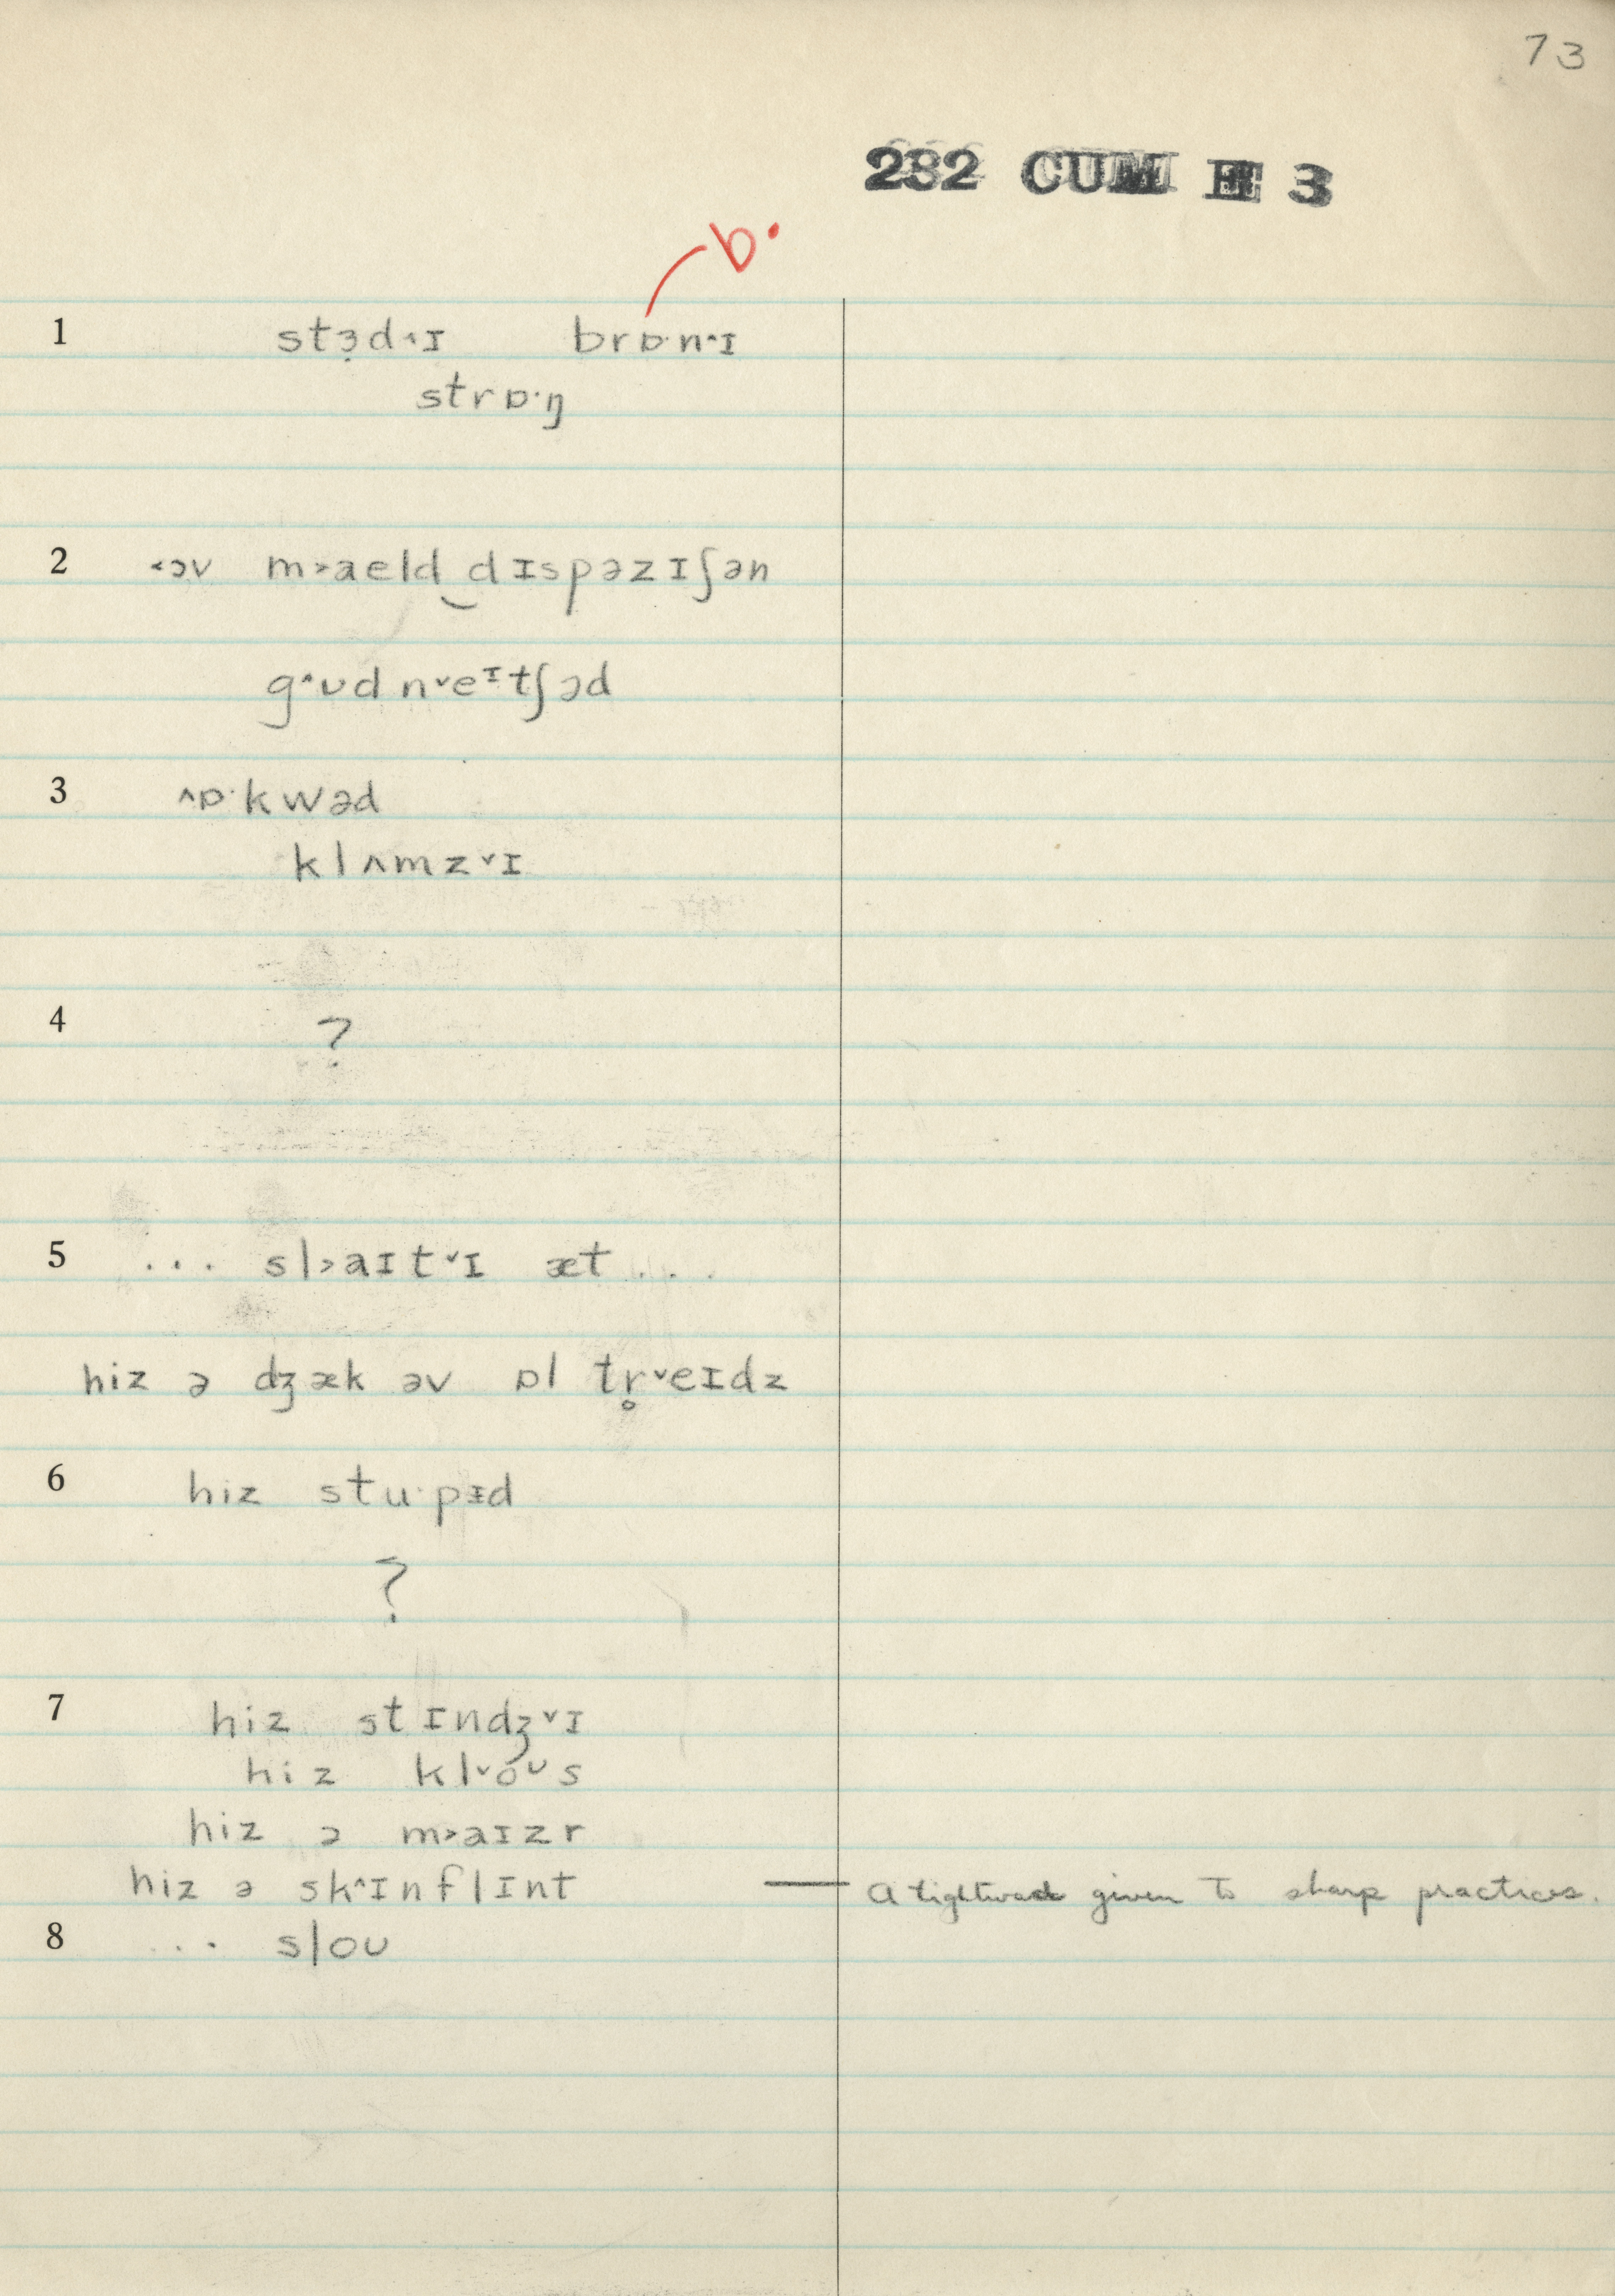 73
232 CUM E 3
ɒ·
1 stɜ̣d˄ɪ brɒ·n˄ɪ
strɒ·ŋ
2 ˂ɔv m˃aeld‿dɪspəzɪʃən
g˄ʊd n˅eᶦtʃəd
3 ˄ɒ·kwəd
klʌmz˅ɪ
4 ?
5 ... sl˃aɪt˅ɪ æt ...
hiz ə dʒæk əv ɒl tr̥˅eɪdz
6 hiz stu·pɪd
?
7 hiz stɪndʒ˅ɪ
hiz kl˅oᶷs
hiz ə m˃aɪzr
hiz ə sk˄ɪnflɪnt — A tightwad given to sharp practices.
8 ... sloʊ